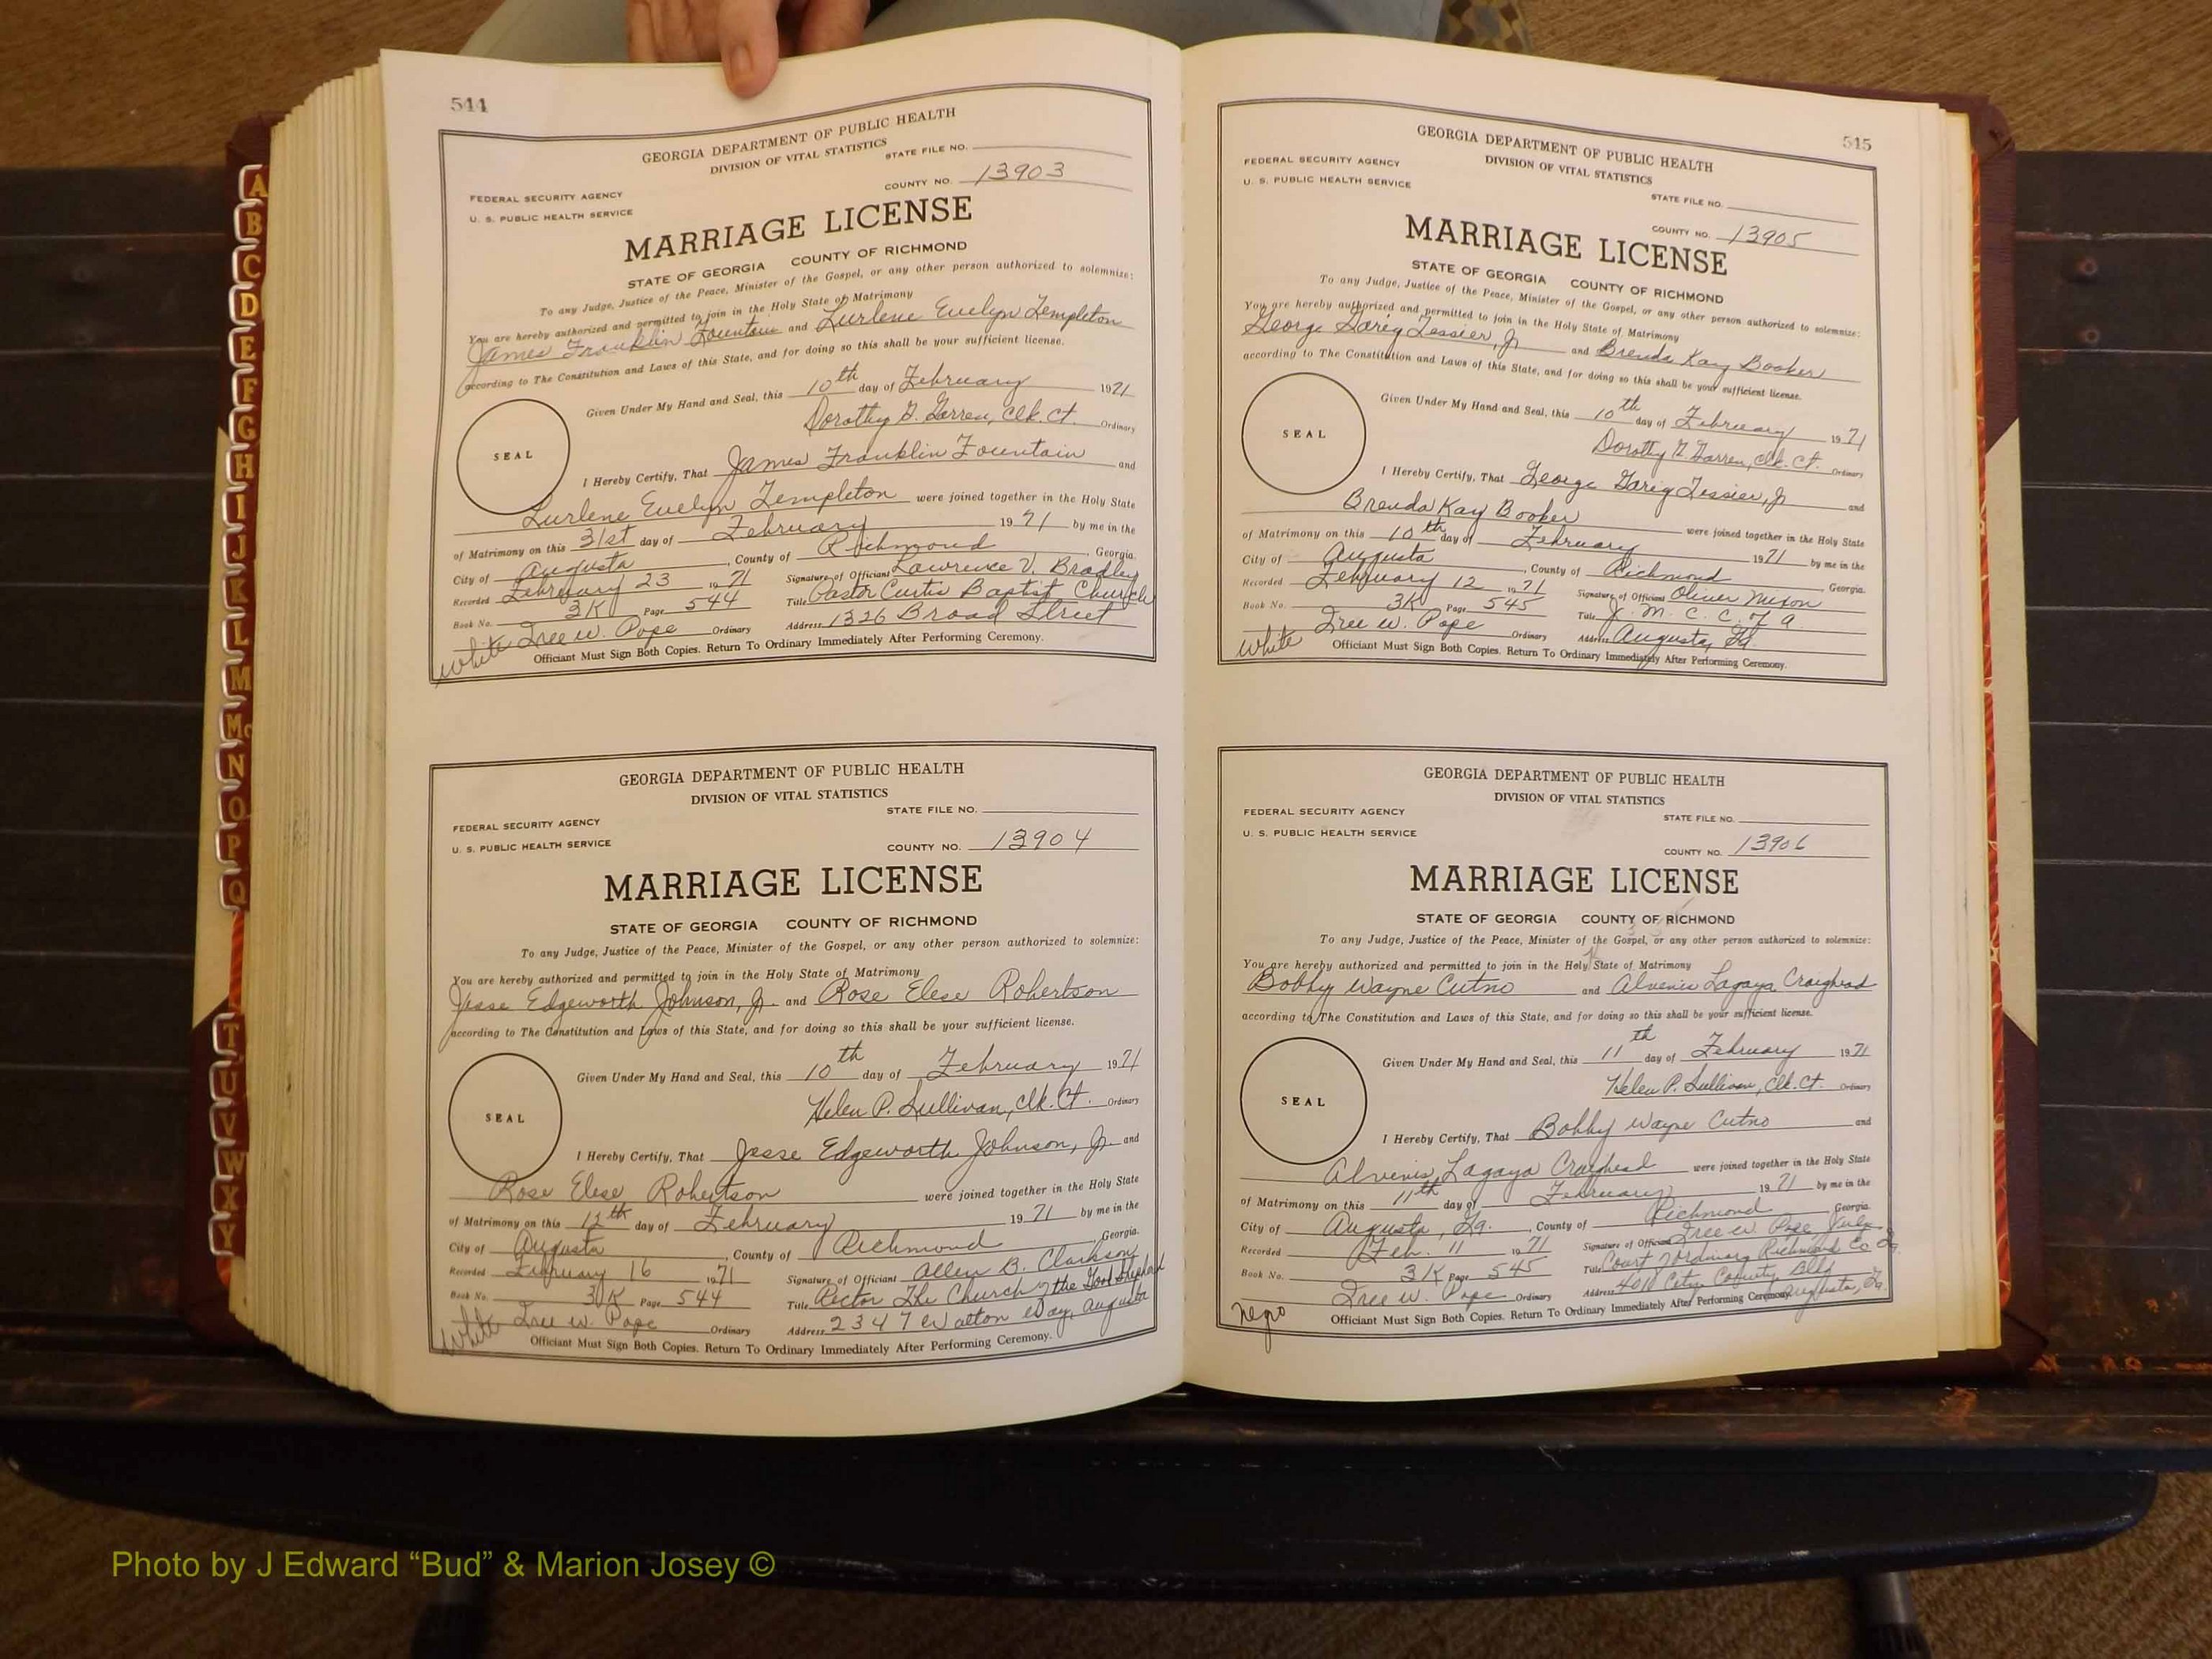 544
GEORGIA DEPARTMENT OF PUBLIC HEALTH
DIVISION OF VITAL STATISTICS
STATE FILE NO.
FEDERAL SECURITY AGENCY
COUNTY NO. 13903
U. S. PUBLIC HEALTH SERVICE
MARRIAGE LICENSE
STATE OF GEORGIA COUNTY OF RICHMOND
To any Judge, Justice of the Peace, Minister of the Gospel, or any other person authorized to solemnize:
You are hereby authorized and permitted to join in the Holy State of Matrimony
James Franklin Fountain and Lurlene Evelyn Templeton
according to The Constitution and Laws of this State, and for doing so this shall be your sufficient license.
Given Under My Hand and Seal, this 10th day of February 1971
Dorothy G. Garren, Clk. Ct. Ordinary
SEAL
I Hereby Certify, That James Franklin Fountain and
Lurlene Evelyn Templeton were joined together in the Holy State
of Matrimony on this 31st day of February 1971 by me in the
City of Augusta, County of Richmond, Georgia.
Recorded February 23 1971 Signature of Officiant Lawrence V. Bradley
Book No. 3K Page 544 Title Pastor Curtis Baptist Church
Tree W. Pope Ordinary Address 1326 Broad Street
white Officiant Must Sign Both Copies. Return To Ordinary Immediately After Performing Ceremony.
GEORGIA DEPARTMENT OF PUBLIC HEALTH
DIVISION OF VITAL STATISTICS
STATE FILE NO.
FEDERAL SECURITY AGENCY
U. S. PUBLIC HEALTH SERVICE
COUNTY NO. 13904
MARRIAGE LICENSE
STATE OF GEORGIA COUNTY OF RICHMOND
To any Judge, Justice of the Peace, Minister of the Gospel, or any other person authorized to solemnize:
You are hereby authorized and permitted to join in the Holy State of Matrimony
Jesse Edgeworth Johnson, Jr. and Rose Elese Robertson
according to The Constitution and Laws of this State, and for doing so this shall be your sufficient license.
Given Under My Hand and Seal, this 10th day of February 1971
Helen P. Sullivan, Clk. Ct. Ordinary
SEAL
I Hereby Certify, That Jesse Edgeworth Johnson, Jr. and
Rose Elese Robertson were joined together in the Holy State
of Matrimony on this 12th day of February 1971 by me in the
City of Augusta, County of Richmond, Georgia.
Recorded February 16 1971 Signature of Officiant Allen B. Clarkson
Book No. 3K Page 544 Title Rector The Church of the Good Shepherd
Tree W. Pope Ordinary Address 2347 Walton Way, Augusta
White Officiant Must Sign Both Copies. Return To Ordinary Immediately After Performing Ceremony.
545
GEORGIA DEPARTMENT OF PUBLIC HEALTH
DIVISION OF VITAL STATISTICS
FEDERAL SECURITY AGENCY
U. S. PUBLIC HEALTH SERVICE
STATE FILE NO.
COUNTY NO. 13905
MARRIAGE LICENSE
STATE OF GEORGIA COUNTY OF RICHMOND
To any Judge, Justice of the Peace, Minister of the Gospel, or any other person authorized to solemnize:
You are hereby authorized and permitted to join in the Holy State of Matrimony
George Tessier, Jr and Brenda Kay Booker
according to The Constitution and Laws of this State, and for doing so this shall be your sufficient license.
Given Under My Hand and Seal, this 10th day of February 1971
Dorothy G. Garren, Clk. Ct. Ordinary
SEAL
I Hereby Certify, That George Tessier, Jr and
Brenda Kay Booker were joined together in the Holy State
of Matrimony on this 10th day of February 1971 by me in the
City of Augusta, County of Richmond, Georgia.
Recorded February 12 1971 Signature of Officiant Oliver Nixon
Book No. 3K Page 545 Title J. M. C. C. of A
Tree W. Pope Ordinary Address Augusta, Ga.
White Officiant Must Sign Both Copies. Return To Ordinary Immediately After Performing Ceremony.
GEORGIA DEPARTMENT OF PUBLIC HEALTH
DIVISION OF VITAL STATISTICS
FEDERAL SECURITY AGENCY
STATE FILE NO.
U. S. PUBLIC HEALTH SERVICE
COUNTY NO. 13906
MARRIAGE LICENSE
STATE OF GEORGIA COUNTY OF RICHMOND
To any Judge, Justice of the Peace, Minister of the Gospel, or any other person authorized to solemnize:
You are hereby authorized and permitted to join in the Holy State of Matrimony
Bobby Wayne Cutno and Alvenis Lagaya Craighead
according to The Constitution and Laws of this State, and for doing so this shall be your sufficient license.
Given Under My Hand and Seal, this 11th day of February 1971
Helen P. Sullivan, Clk. Ct. Ordinary
SEAL
I Hereby Certify, That Bobby Wayne Cutno and
Alvenis Lagaya Craighead were joined together in the Holy State
of Matrimony on this 11th day of February 1971 by me in the
City of Augusta, Ga., County of Richmond Georgia.
Recorded Feb. 11 1971 Signature of Officiant Tree W. Pope, Judge
Book No. 3K Page 545 Title Court of Ordinary Richmond Co Ga.
Tree W. Pope Ordinary Address 401 City County Bldg Augusta, Ga.
negro Officiant Must Sign Both Copies. Return To Ordinary Immediately After Performing Ceremony.
A
B
C
D
E
F
G
H
I
J
K
L
M
Mc
N
O
P
Q
T
U
V
W
X
Y
Photo by J Edward “Bud” & Marion Josey ©